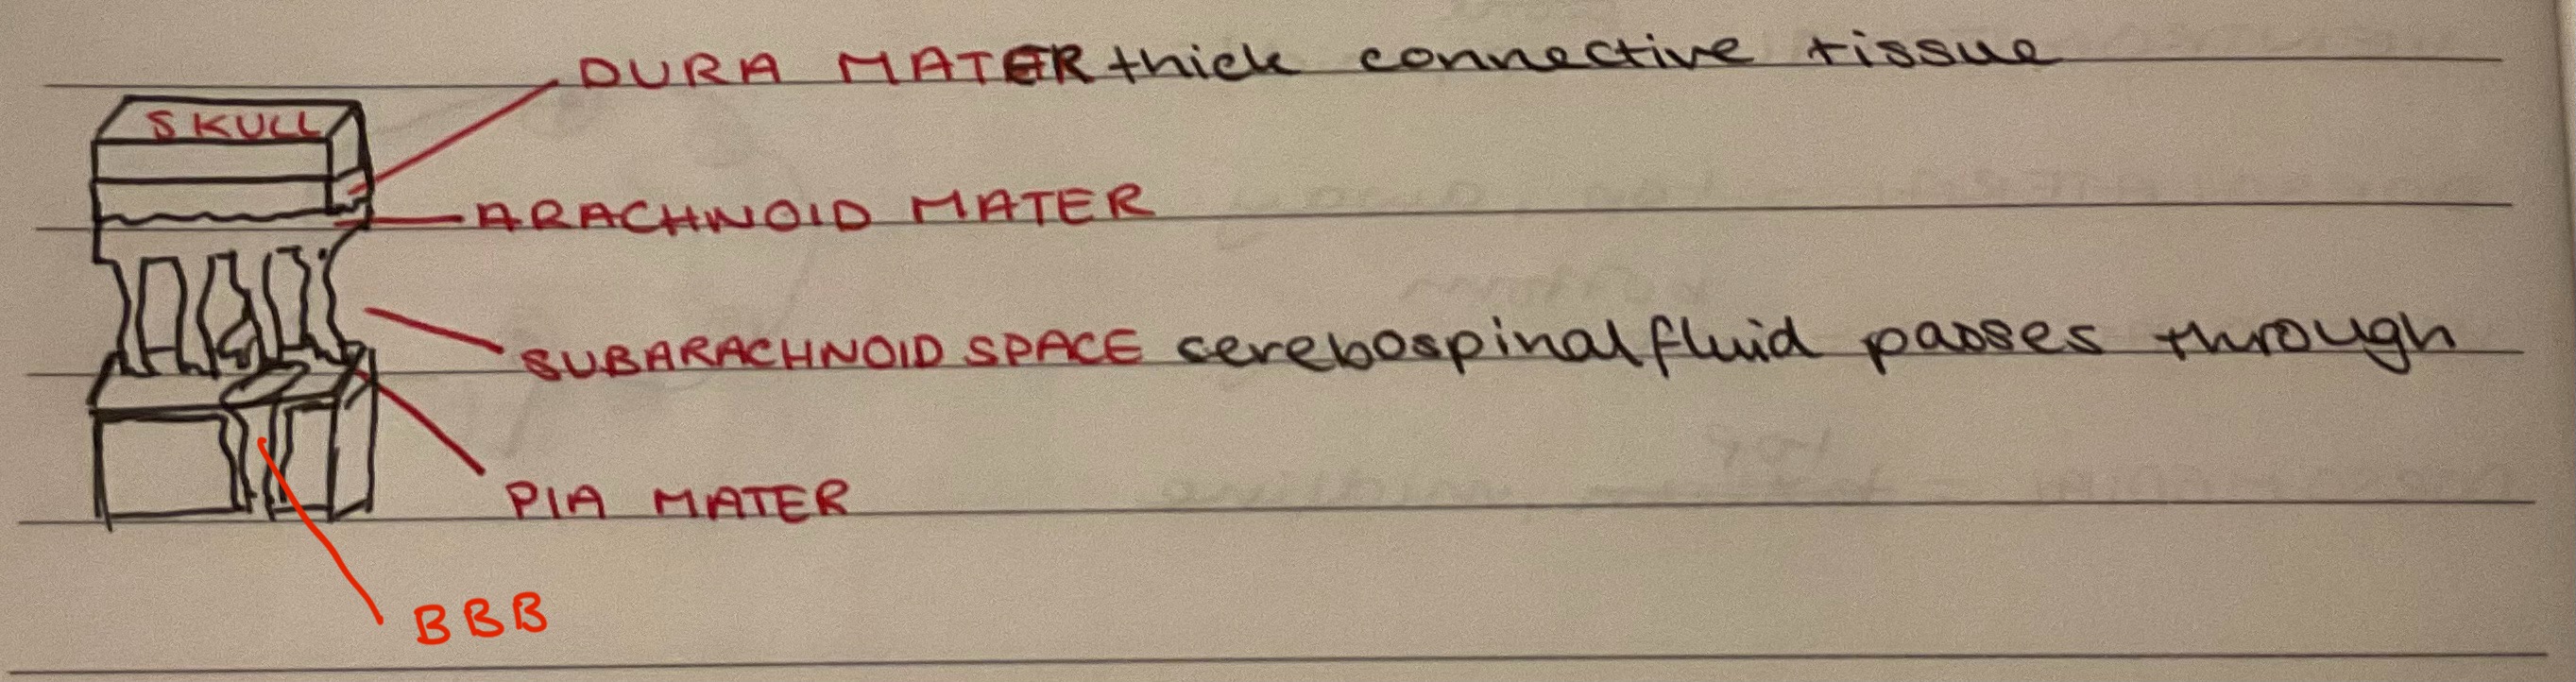 DURA MATER thick connective tissue
SKULL
ARACHNOID MATER
SUBARACHNOID SPACE cerebospinal fluid passes through
PIA MATER
BBB